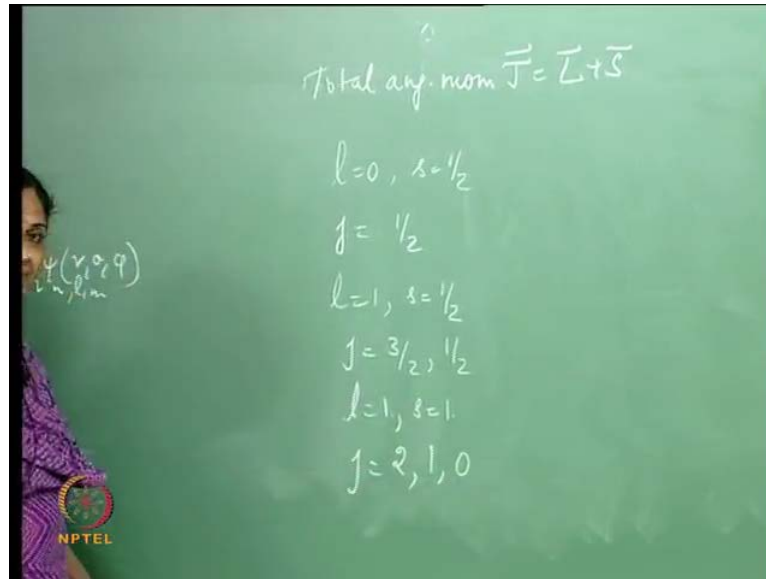 Total ang. mom J⃗ = L⃗ + S⃗
l=0, s=1/2
j = 1/2
l=1, s=1/2
j = 3/2, 1/2
l=1, s=1.
j = 2, 1, 0
ψ(r,θ,φ)
n,l,m
NPTEL